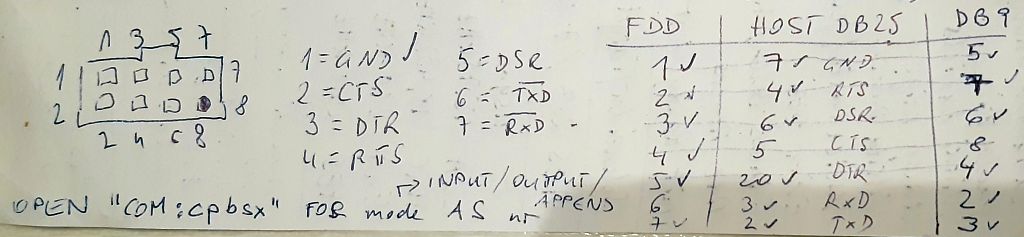 1 3 5 7
1 7
2 8
2 4 6 8
1 = GND ✓ 5 = DSR
2 = CTS 6 = TXD
3 = DTR 7 = RXD
4 = RTS
OPEN "COM:cpbsx" FOR mode AS nr
→ INPUT/OUTPUT/
APPEND
FDD HOST DB25 DB9
1 ✓ 7 ✓ GND 5 ✓
2 ✓ 4 ✓ RTS 7 ✓
3 ✓ 6 ✓ DSR 6 ✓
4 ✓ 5 CTS 8
5 ✓ 20 ✓ DTR 4 ✓
6 3 ✓ RxD 2 ✓
7 ✓ 2 ✓ TxD 3 ✓